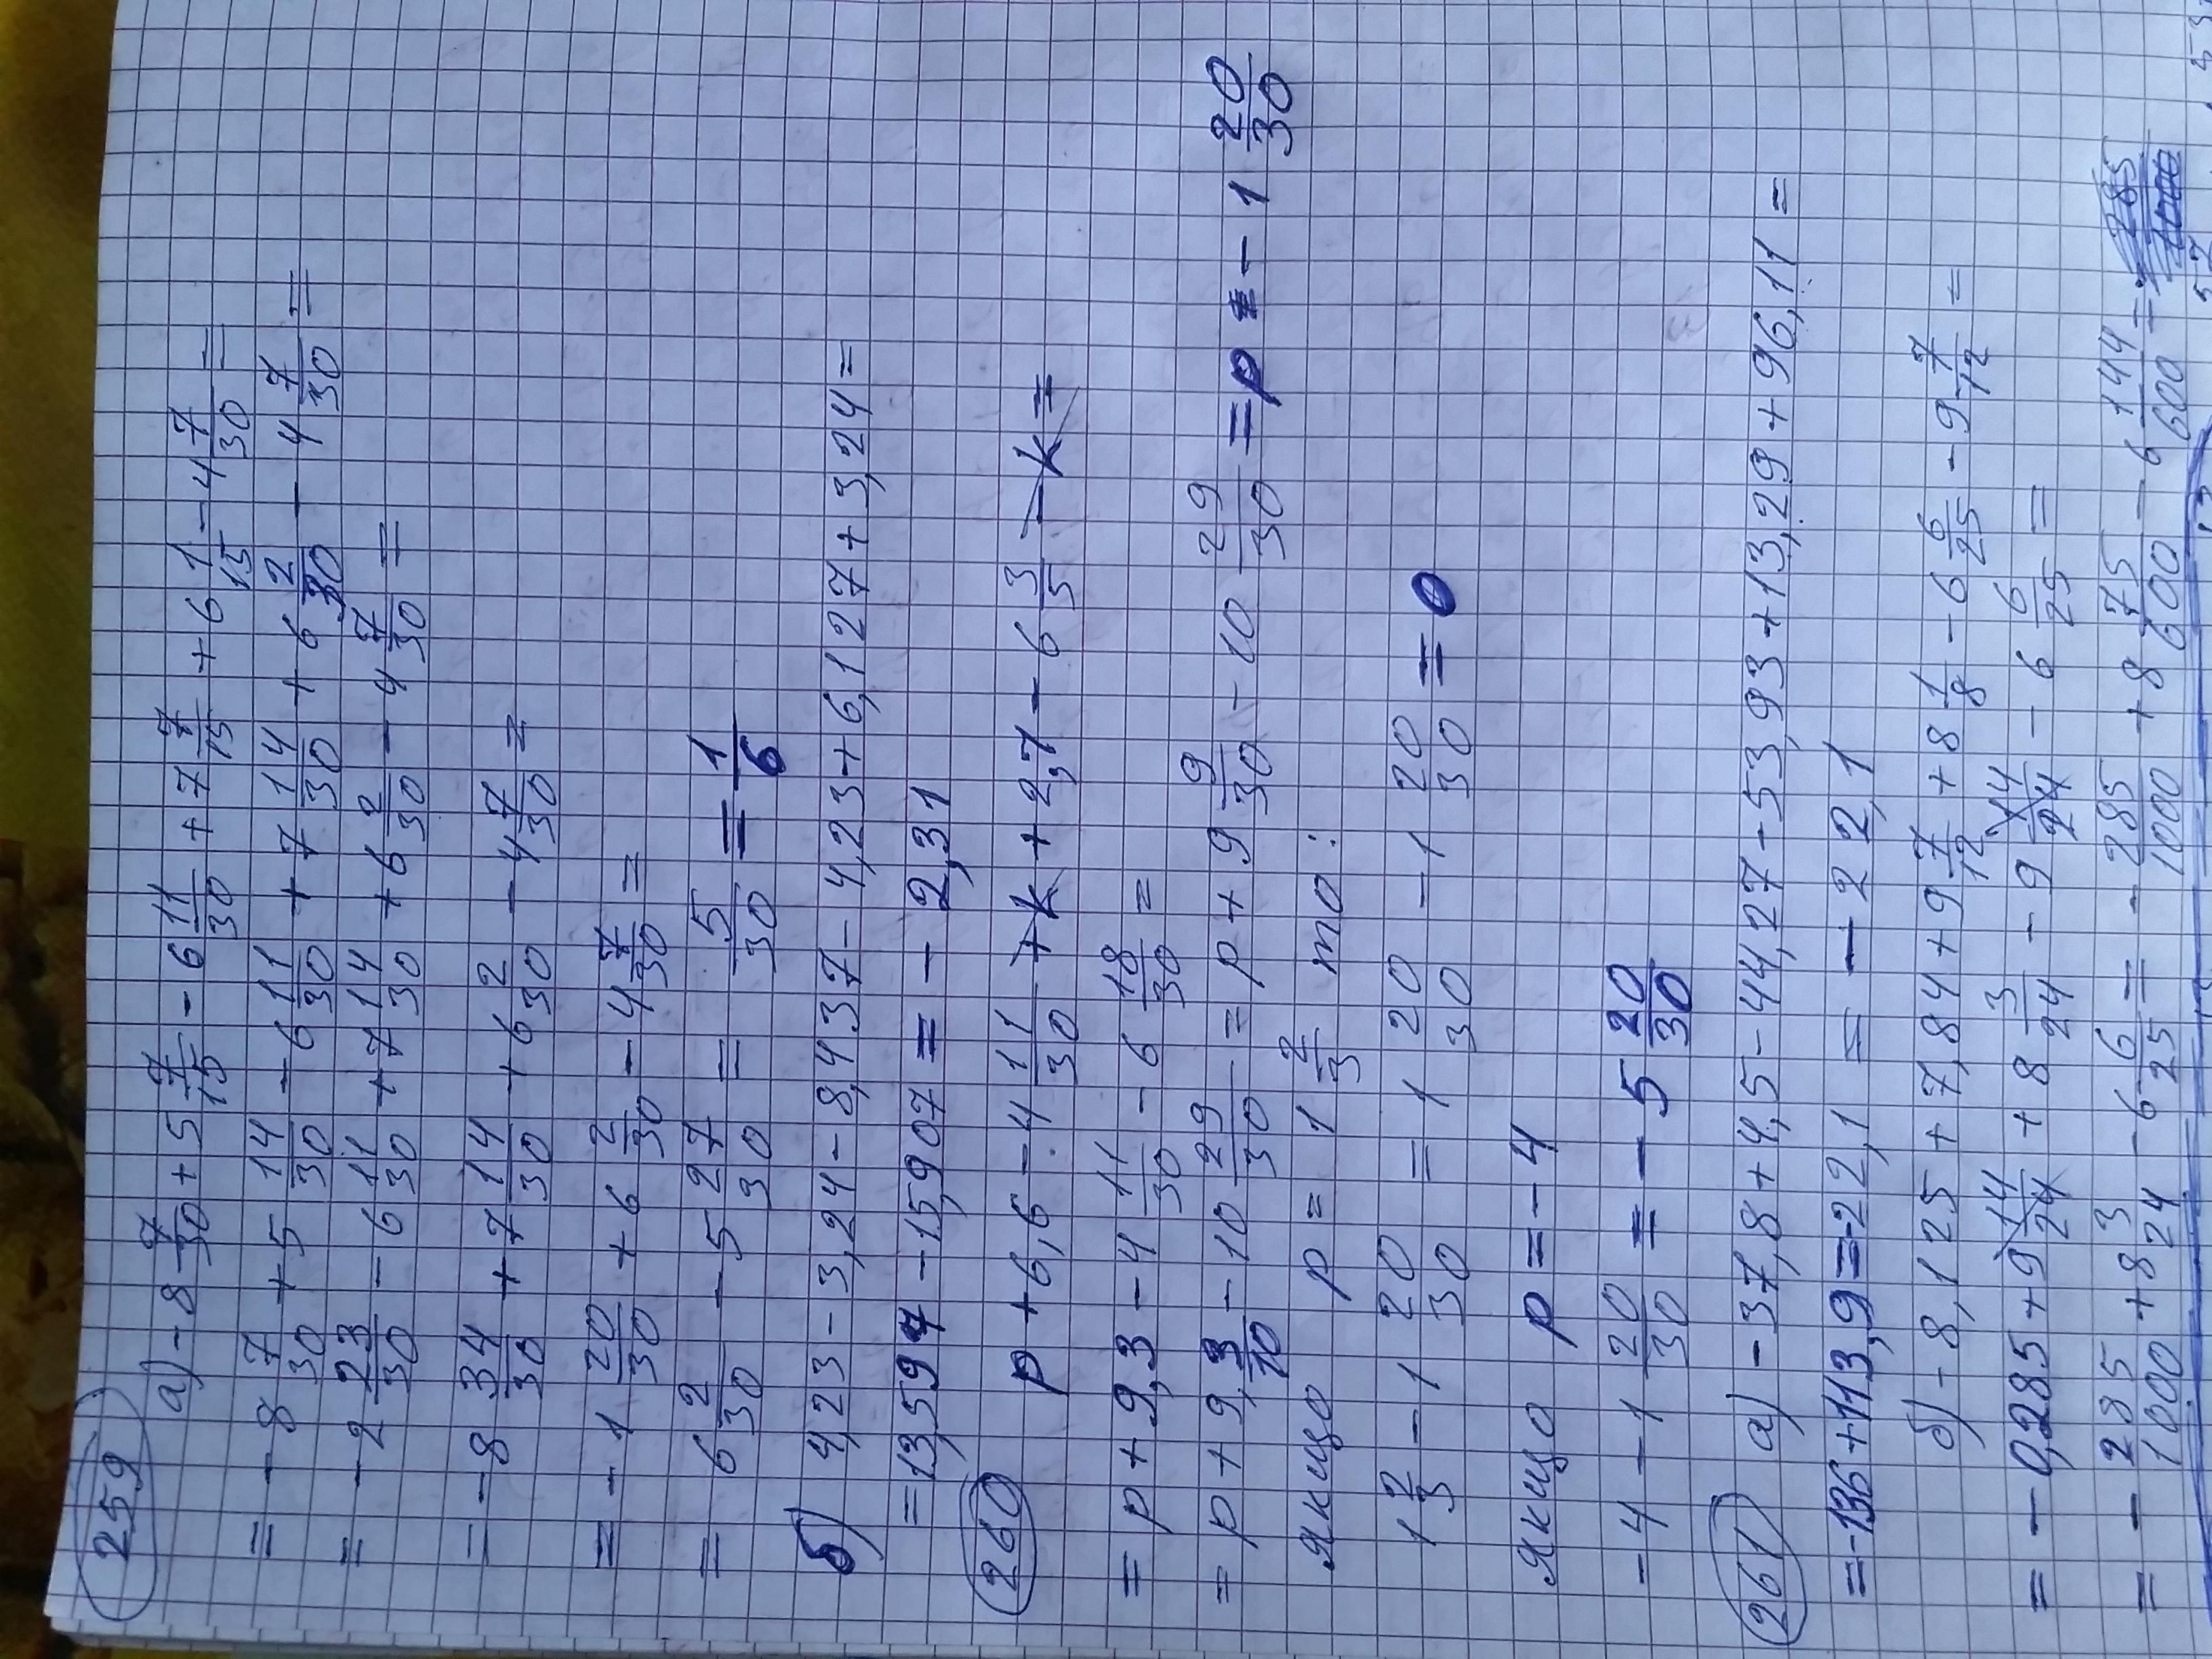 259
а) - 8 7/30 + 5 7/15 - 6 11/30 + 7 7/15 + 6 1/15 - 4 7/30 =
= - 8 7/30 + 5 14/30 - 6 11/30 + 7 14/30 + 6 2/30 - 4 7/30 =
= - 2 23/30 - 6 11/30 + 7 14/30 + 6 2/30 - 4 7/30 =
= - 8 34/30 + 7 14/30 + 6 2/30 - 4 7/30 =
= - 1 20/30 + 6 2/30 - 4 7/30 =
= 6 2/30 - 5 27/30 = 5/30 = 1/6
б) 4,23 - 3,24 - 8,437 - 4,23 + 6,127 + 3,24 =
= 13,597 - 15,907 = - 2,31
260 p + 6,6 - 4 11/30 + k + 2,7 - 6 3/5 - k =
= p + 9,3 - 4 11/30 - 6 18/30 =
= p + 9,3/10 - 10 29/30 = p + 9 9/30 - 10 29/30 = p - 1 20/30
якщо p = 1 2/3 то :
1 2/3 - 1 20/30 = 1 20/30 - 1 20/30 = 0
якщо p = - 4
- 4 - 1 20/30 = - 5 20/30
261 а) - 37,8 + 4,5 - 44,27 - 53,93 + 13,29 + 96,11 =
= -136 + 113,9 = -22,1 = - 22,1
б) - 8,125 + 7,84 + 9 7/12 + 8 1/8 - 6 6/25 - 9 7/12 =
= - 0,285 + 9 14/24 + 8 3/24 - 9 14/24 - 6 6/25 =
= - 285/1000 + 8 3/24 - 6 6/25 = - 285/1000 + 8 75/600 - 6 144/600 =